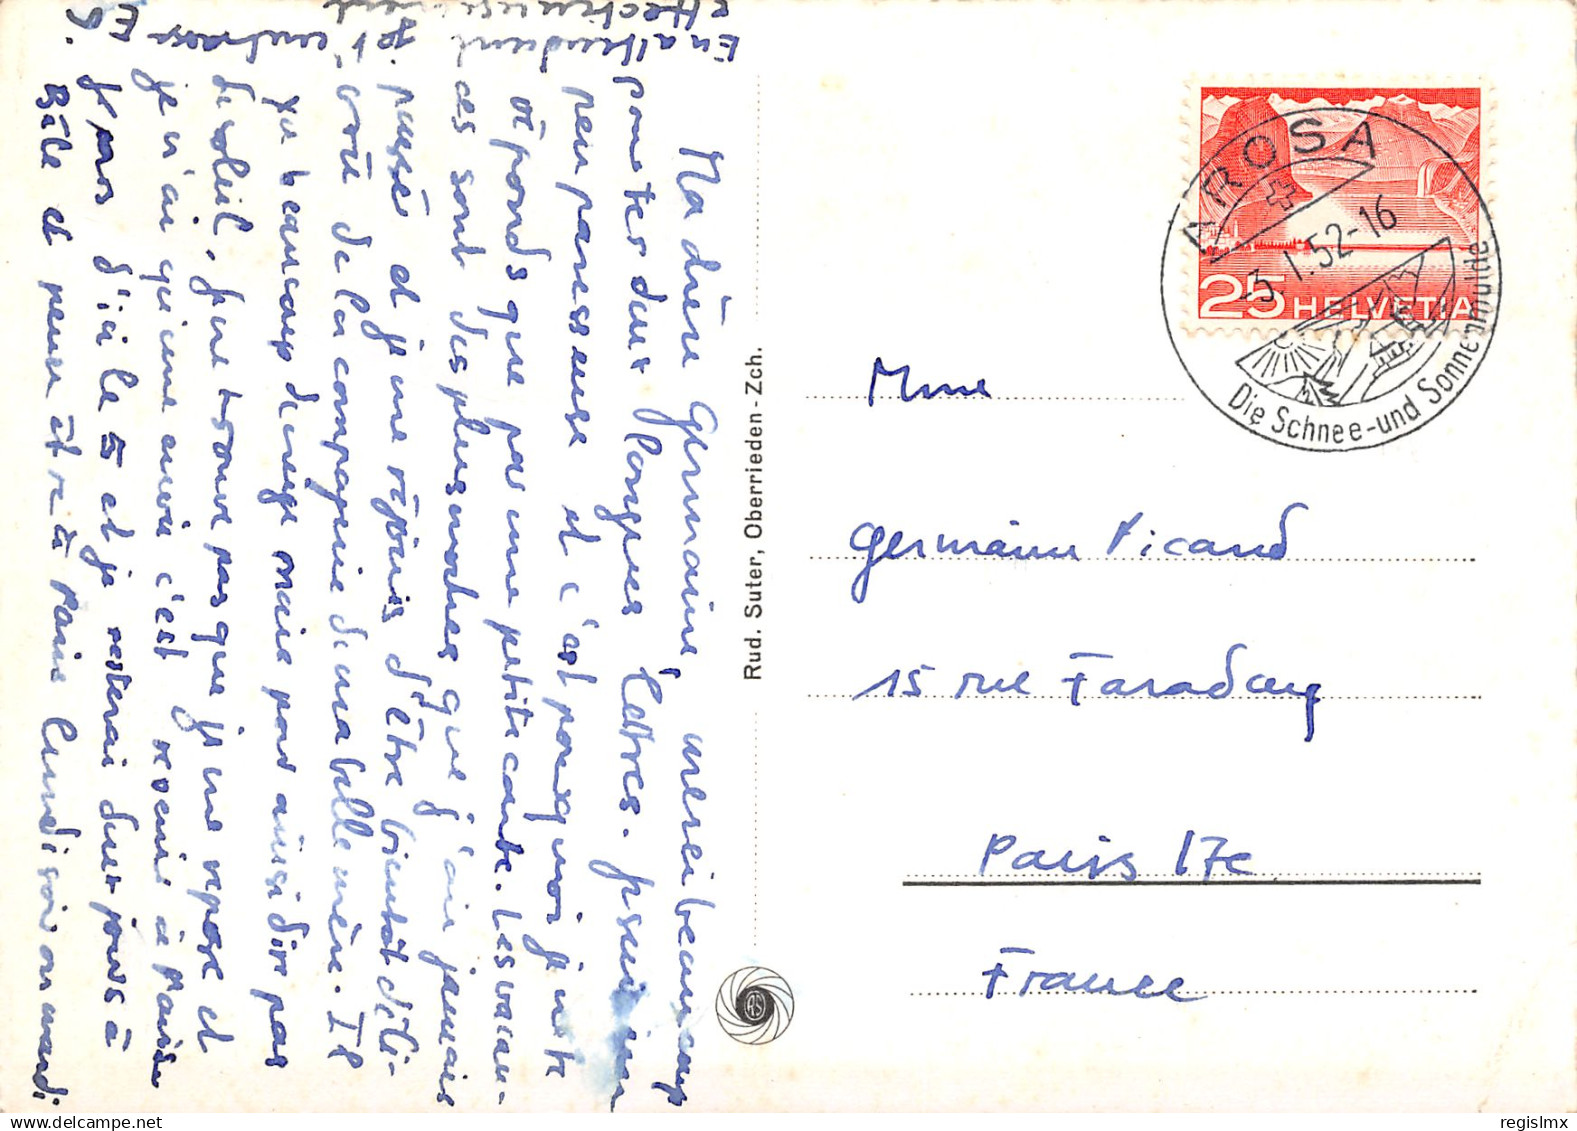 Ma chère Germaine, merci beaucoup
pour tes deux longues lettres. Je suis un
peu paresseuse et c'est pourquoi je ne te
réponds que par une petite carte. Les vacan-
ces sont des plus moches que j'aie jamais
passé et je me réjouis d'être bientôt déli-
vrée de la compagnie de ma belle mère. Il
ya beaucoup de neige mais pour ainsi dire pas
de soleil. Je ne trouve pas que je me repose et
je n'ai qu'une envie c'est revenir à Paris
Je pars d'ici le 5 et je resterai deux jours à
Bâle et pense être à Paris lundi soir ou mardi
En attendant je t'embrasse
affectueusement
Rud. Suter, Oberrieden-Zch.
RS
AROSA
-3.1.52-16
Die Schnee-und Sonnenmulde
25 HELVETIA
Mme
Germaine Picard
15 rue Faraday
Paris 17e
France
regislmx